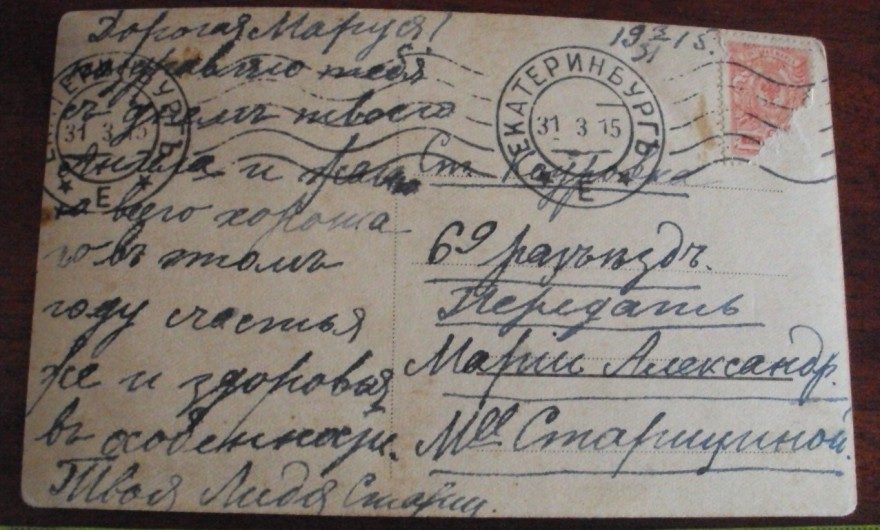 Дорогая Маруся!
поздравляю тебя
съ днемъ твоего
Ангела и желаю
всего хороша
го въ этомъ
году счастья
же и здоровья
въ особенности.
Твоя Лидя Стариц.
19 3/31 15.
ЕКАТЕРИНБУРГЪ
31 3 15
Е
ЕКАТЕРИНБУРГЪ
31 3 15
Е
Ст. Кауровка
69 разъѣздъ.
Передать
Маріи Александр.
Mlle Старициной.